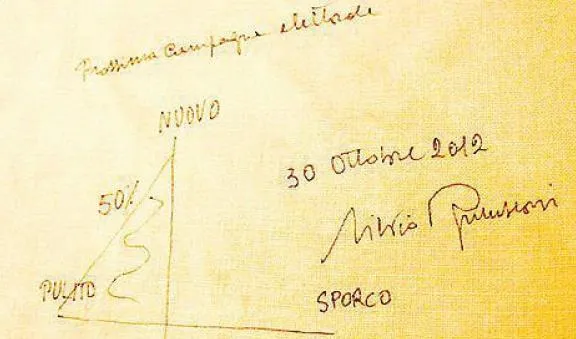 Prossima Campagna elettorale
NUOVO
30 Ottobre 2012
50%
Silvio Berlusconi
PULITO
SPORCO